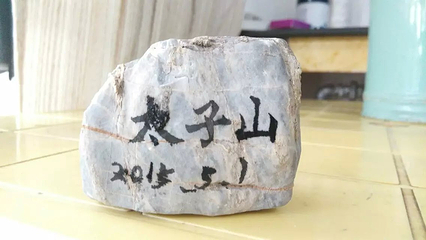 太子山
2015.5.1